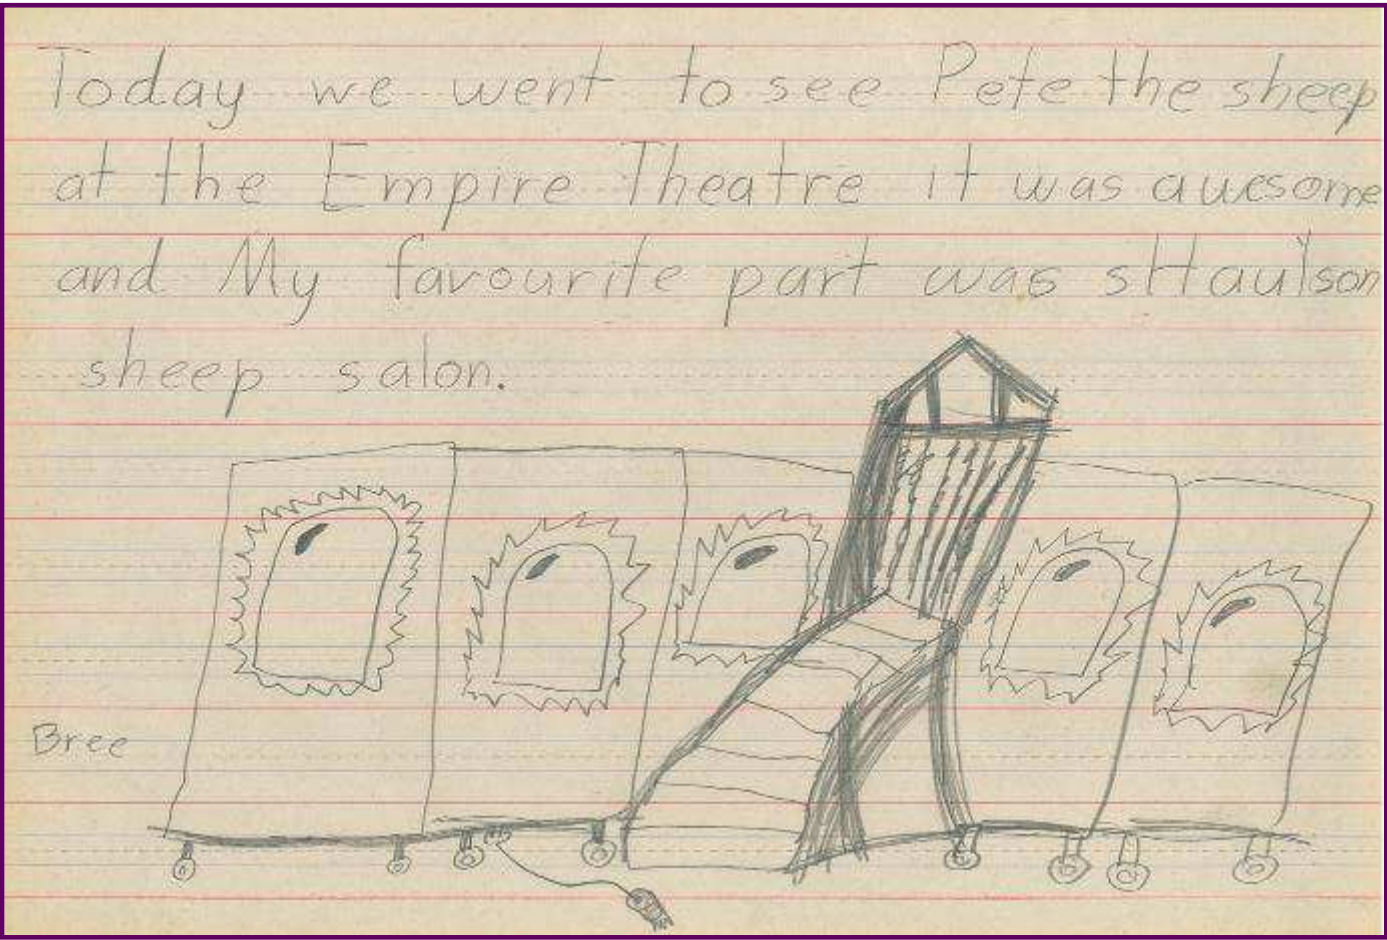 Today we went to see Pete the sheep
at the Empire Theatre it was awesome
and My favourite part was sHau'lson
sheep salon.
Bree